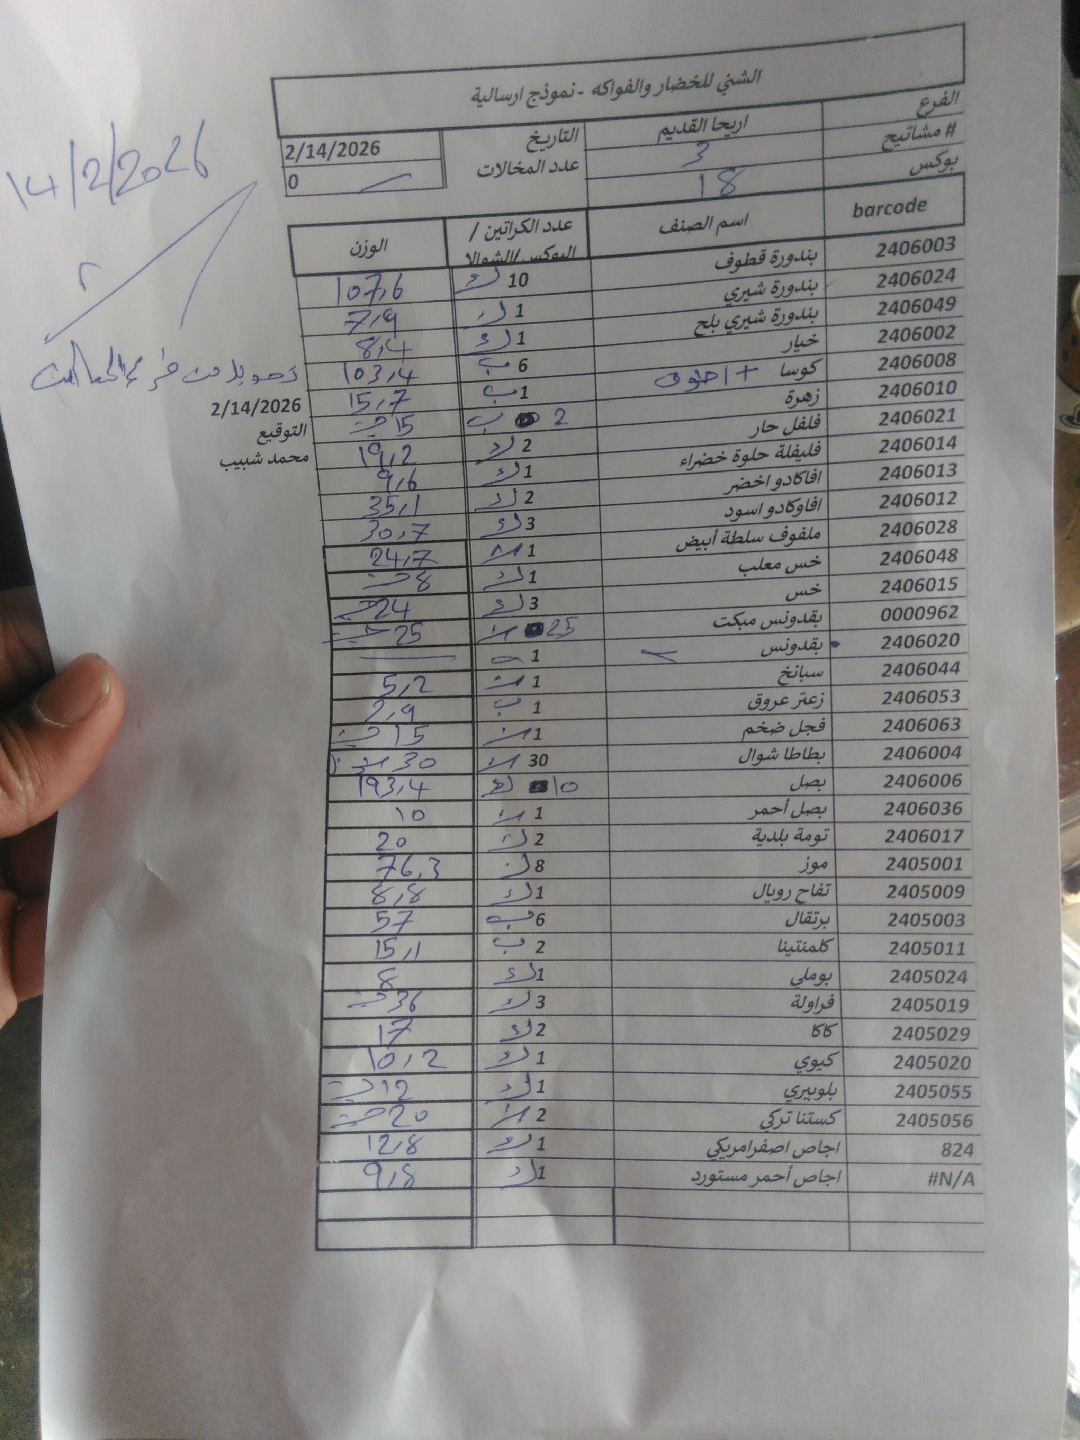 الشني للخضار والفواكه - نموذج ارسالية
الفرع اريحا القديم التاريخ 2/14/2026
# مشاتيح 3 عدد المخالات 0
بوكس 18
14/2/2026
barcode اسم الصنف عدد الكراتين / البوكس/الشوالا الوزن
2406003 بندورة قطوف 10 ك 107,6
2406024 بندورة شيري 1 ك 7,9
2406049 بندورة شيري بلح 1 ك 8,4
2406002 خيار 6 ب 103,4
2406008 كوسا + 1 ب 15,7
2406010 زهرة 2 ب 15
2406021 فلفل حار 2 ك 19,2
2406014 فليفلة حلوة خضراء 1 ك 9,6
2406013 افاكادو اخضر 2 ك 35,1
2406012 افاوكادو اسود 3 ك 30,7
2406028 ملفوف سلطة أبيض 1 24,7
2406048 خس معلب 1 ك 8
2406015 خس 3 ك 24
0000962 بقدونس مبكت 25 25
2406020 بقدونس 1
2406044 سبانخ 1 5,2
2406053 زعتر عروق 1 ب 2,9
2406063 فجل ضخم 1 15
2406004 بطاطا شوال 30 30
2406006 بصل 10 193,4
2406036 بصل أحمر 1 10
2406017 تومة بلدية 2 ك 20
2405001 موز 8 ك 76,3
2405009 تفاح رويال 1 ك 8,8
2405003 برتقال 6 ب 57
2405011 كلمنتينا 2 ب 15,1
2405024 بوملي 1 ك 8
2405019 فراولة 3 ك 36
2405029 كاكا 2 ك 17
2405020 كيوي 1 ك 10,2
2405055 بلوبيري 1 ك 12
2405056 كستنا تركي 2 20
824 اجاص اصفرامريكي 1 ك 12,8
#N/A اجاص أحمر مستورد 1 ك 9,8
2/14/2026
التوقيع
محمد شبيب